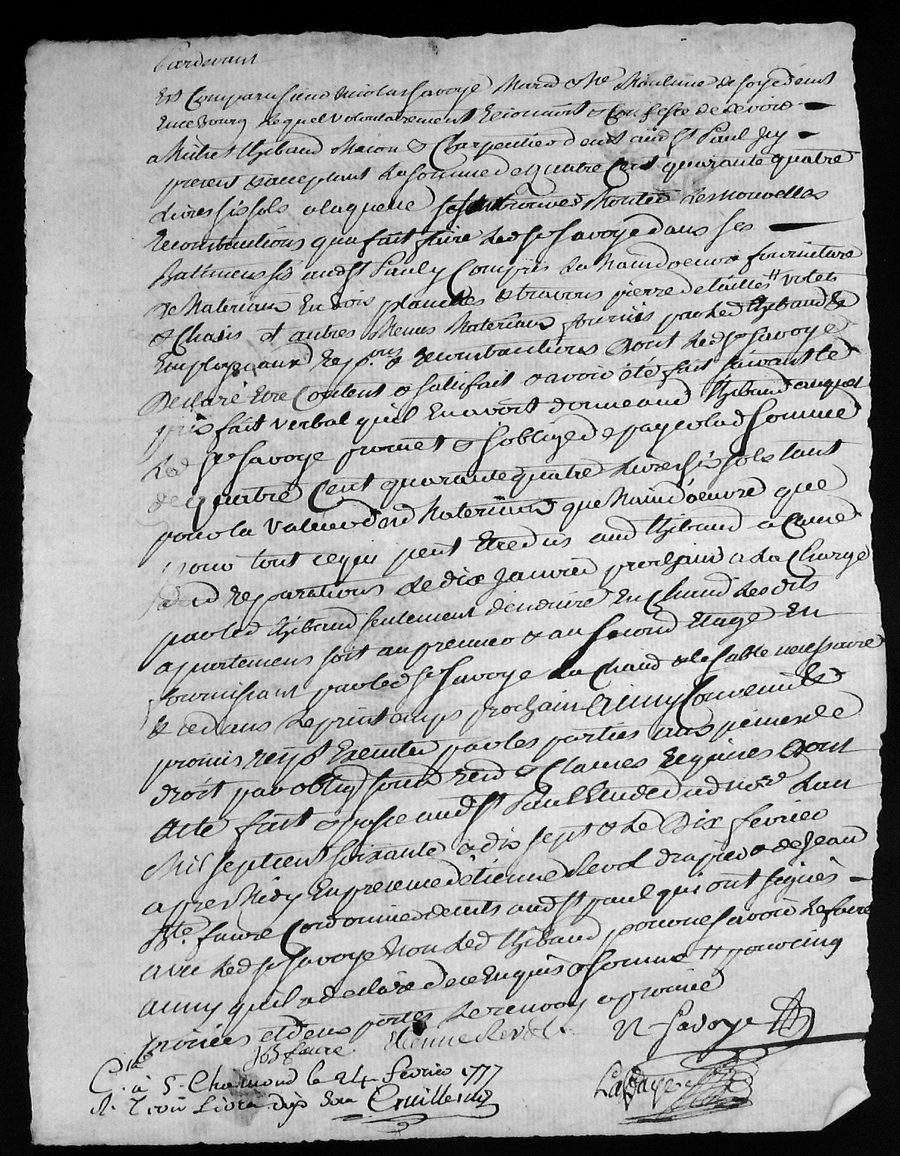 Pardevant
Est Comparu sieur Nicolas Savoye Mard & Me Moulinie de soye demt
En ce Bourg Lequel volontairement Reconnoit & Confesse de devoir
a Mitre Thibaud Macon & Charpentier demt aud St Paul Jcy
present & acceptant La somme de quatre Cent quarante quatre
Livres six sols a laquelle se sont trouvées Montée Les nouvelles
Reconstructions qua fait faire Led Sr Savoye dans ses
Batimens sis aud St Paul y Compris La Main doeuvre fourniture
De Materiaux En bois planches & travons pierre de tailles volets
& Chasis et autres Menus Materiaux fournis par Led Thibaud &
Employe auxd Repons & Reconstructions Dont Led Sr Savoye
Declaré Etre Content & satisfait & avoir été fait suivant Le
pris fait verbal quil En avoit donne aud Thibaud auquel
Led Sr Savoye promet & soblige de payer lad Somme
de quatre Cent quarante quatre Livres six sols tant
pour la valeur desd Materiaux que Main d'oeuvre que
pour tout ce qui peut Etre du aud Thibaud a Cause
desd Reparations Le dix Janvier prochain a La Charge
par led Thibaud seulement denduire En Chaud Les dits
appartemens soit au premier & au second Etage En
fournissant par led Sr Savoye La Chaud & le sable necessaire
& ce dans Le printemps prochain Ainsy Convenu &
promis Respt Executer par les parties aux peines de
droit par oblig soum Rend & Clauses Requises Dont
Acte fait & passé aud St Paul Etude dud nore Lan
Mil sept cent soixante & dix sept & Le Dix fevrier
apres Midy En presence d'Etienne Revol drapier & de Jean
Bte faure Cordonnier demts aud St Paul qui ont signés
avec Led Sr Savoye Non Led Thibaud pour ne savoir Le faire
ainsy quil a declaré de ce Enquis & sommé pour cinq
et deux portes Le renvoy aprouvé
JB faure Etienne Revol N Savoye
C.lé à St Chamond le 24 fevrier 1777
R. Trois Livre dix sou
LaFaye